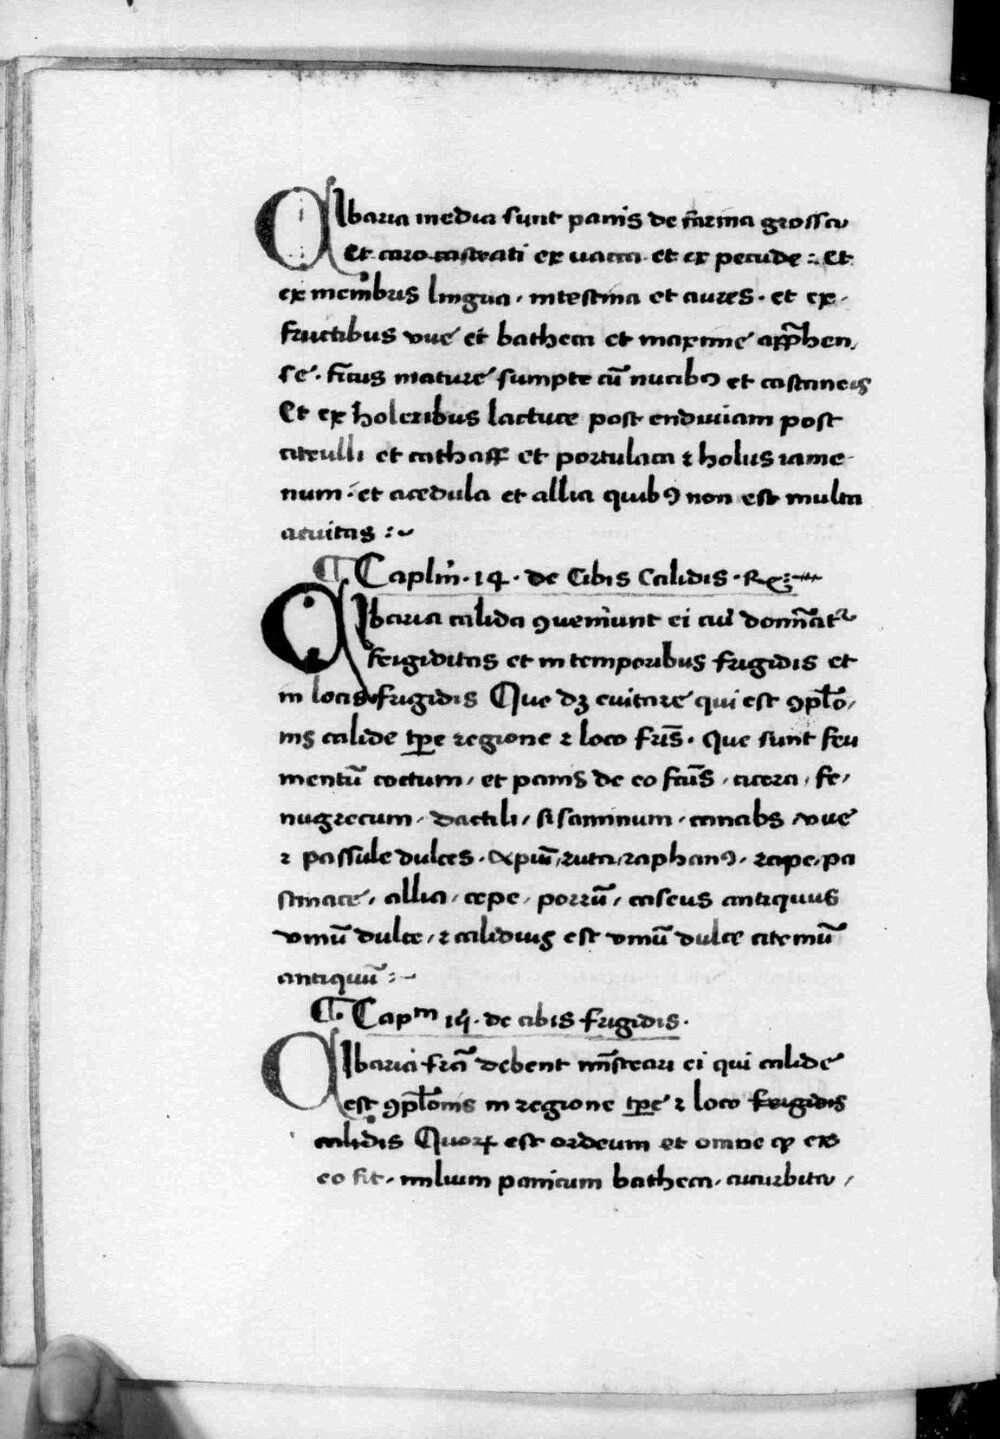 Cibaria media sunt panis de farina grossa
Et caro castrati ex uacca et ex pecude : Et
ex membris lingua · intestina et aures · et ex
fructibus vue et bathecа et maxime app̃hen,
se · ficus mature sumpte cũ nucibꝰ et castaneis
Et ex holeribus lactuce post endiuiam post
citrulli et cathaff et portulaca ⁊ holus iame
num · et acedula et allia quibꝰ non est multa
acuitas :~
¶ Caplm̃ · 14 · de Cibis Calidis ·
Cibaria calida ꝯueniunt ei cui domĩat᷑
frigiditas et in temporibus frigidis et
in locis frigidis Que dꝫ euitare qui est ꝯplo,
nis calide tp̃e regione ⁊ loco · Que sunt fru
mentũ coctum, et panis de eo fcũs, cicera, fe,
nugrecum · dactili, sisaminum · canabs, vue
⁊ passule dulces · apiũ, ruta, raphanꝰ, rape, pa
stinace, allia, cepe, porrũ, caseus antiquus
vinũ dulce, ⁊ calidius est vinũ dulce citeinũ
antiquũ :~
¶ Capm de cibis frigidis ·
Cibaria fr̃a debent mĩstrari ei qui calide
est ꝯplõnis in regione tp̃e ⁊ loco frigidis
calidis Quoꝝ est ordeum et omne ꝙ ex
eo fit · milium panicum batheca, cucurbita,